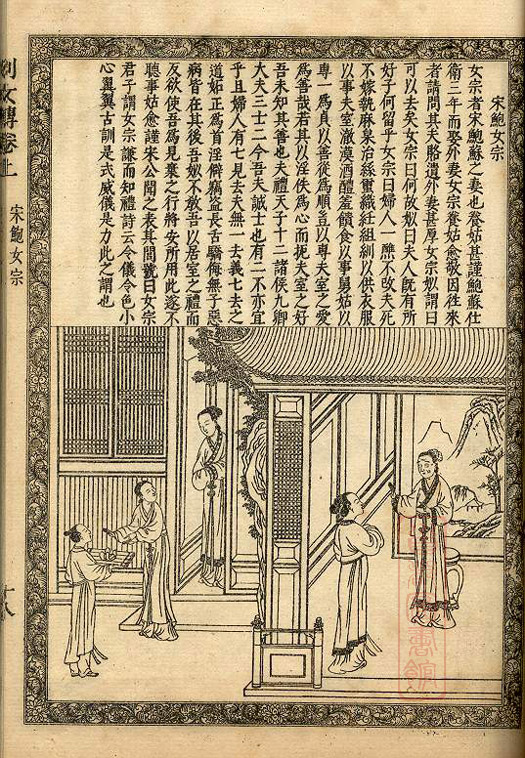 宋鮑女宗
女宗者宋鮑蘇之妻也養姑甚謹鮑蘇仕
衛三年而娶外妻女宗養姑愈敬因往來
者請問其夫賂遺外妻甚厚女宗姒謂曰
可以去矣女宗曰何故姒曰夫人既有所
好子何留乎女宗曰婦人一醮不改夫死
不嫁執麻枲治絲蠒織紝組紃以供衣服
以事夫室澈漠酒醴羞饋食以事舅姑以
專一為貞以善從為順豈以專夫室之愛
為善哉若其以淫佚為心而扼夫室之好
吾未知其善也夫禮天子十二諸侯九卿
大夫三士二今吾夫誠士也有二不亦宜
乎且婦人有七見去夫無一去義七去之
道妬正為首淫僻竊盜長舌驕侮無子惡
病皆在其後吾姒不教吾以居室之禮而
反欲使吾為見棄之行將安所用此遂不
聽事姑愈謹宋公聞之表其閭號曰女宗
君子謂女宗謙而知禮詩云令儀令色小
心翼翼古訓是式威儀是力此之謂也
列女傳卷上
宋鮑女宗
十八